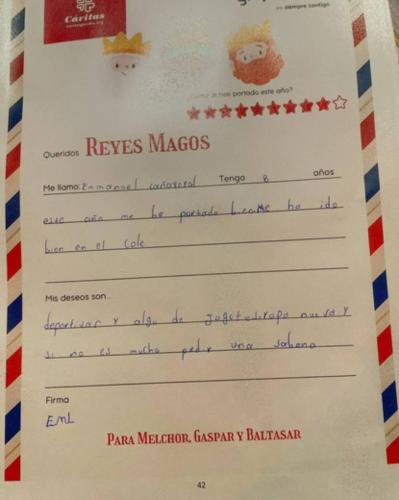 Cáritas
siempre contigo
portado este año?
Queridos REYES MAGOS
Me llamo: Emmanuel Tengo 8 años
este año me he portado bien Me ha ido
bien en el cole
Mis deseos son...
deportivas y algo de ropa nueva y
si no es mucho pedir una sabana
Firma
EML
PARA MELCHOR, GASPAR Y BALTASAR
42